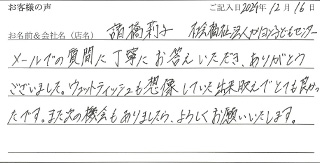 お客様の声 ご記入日2024年12月16日
お名前&会社名(店名) 諸橋莉子
メールでの質問に丁寧にお答えいただき、ありがとう
ございました。ウェットティッシュも想像していた出来映えでとても良かっ
たです。また次の機会もありましたら、よろしくお願いいたします。